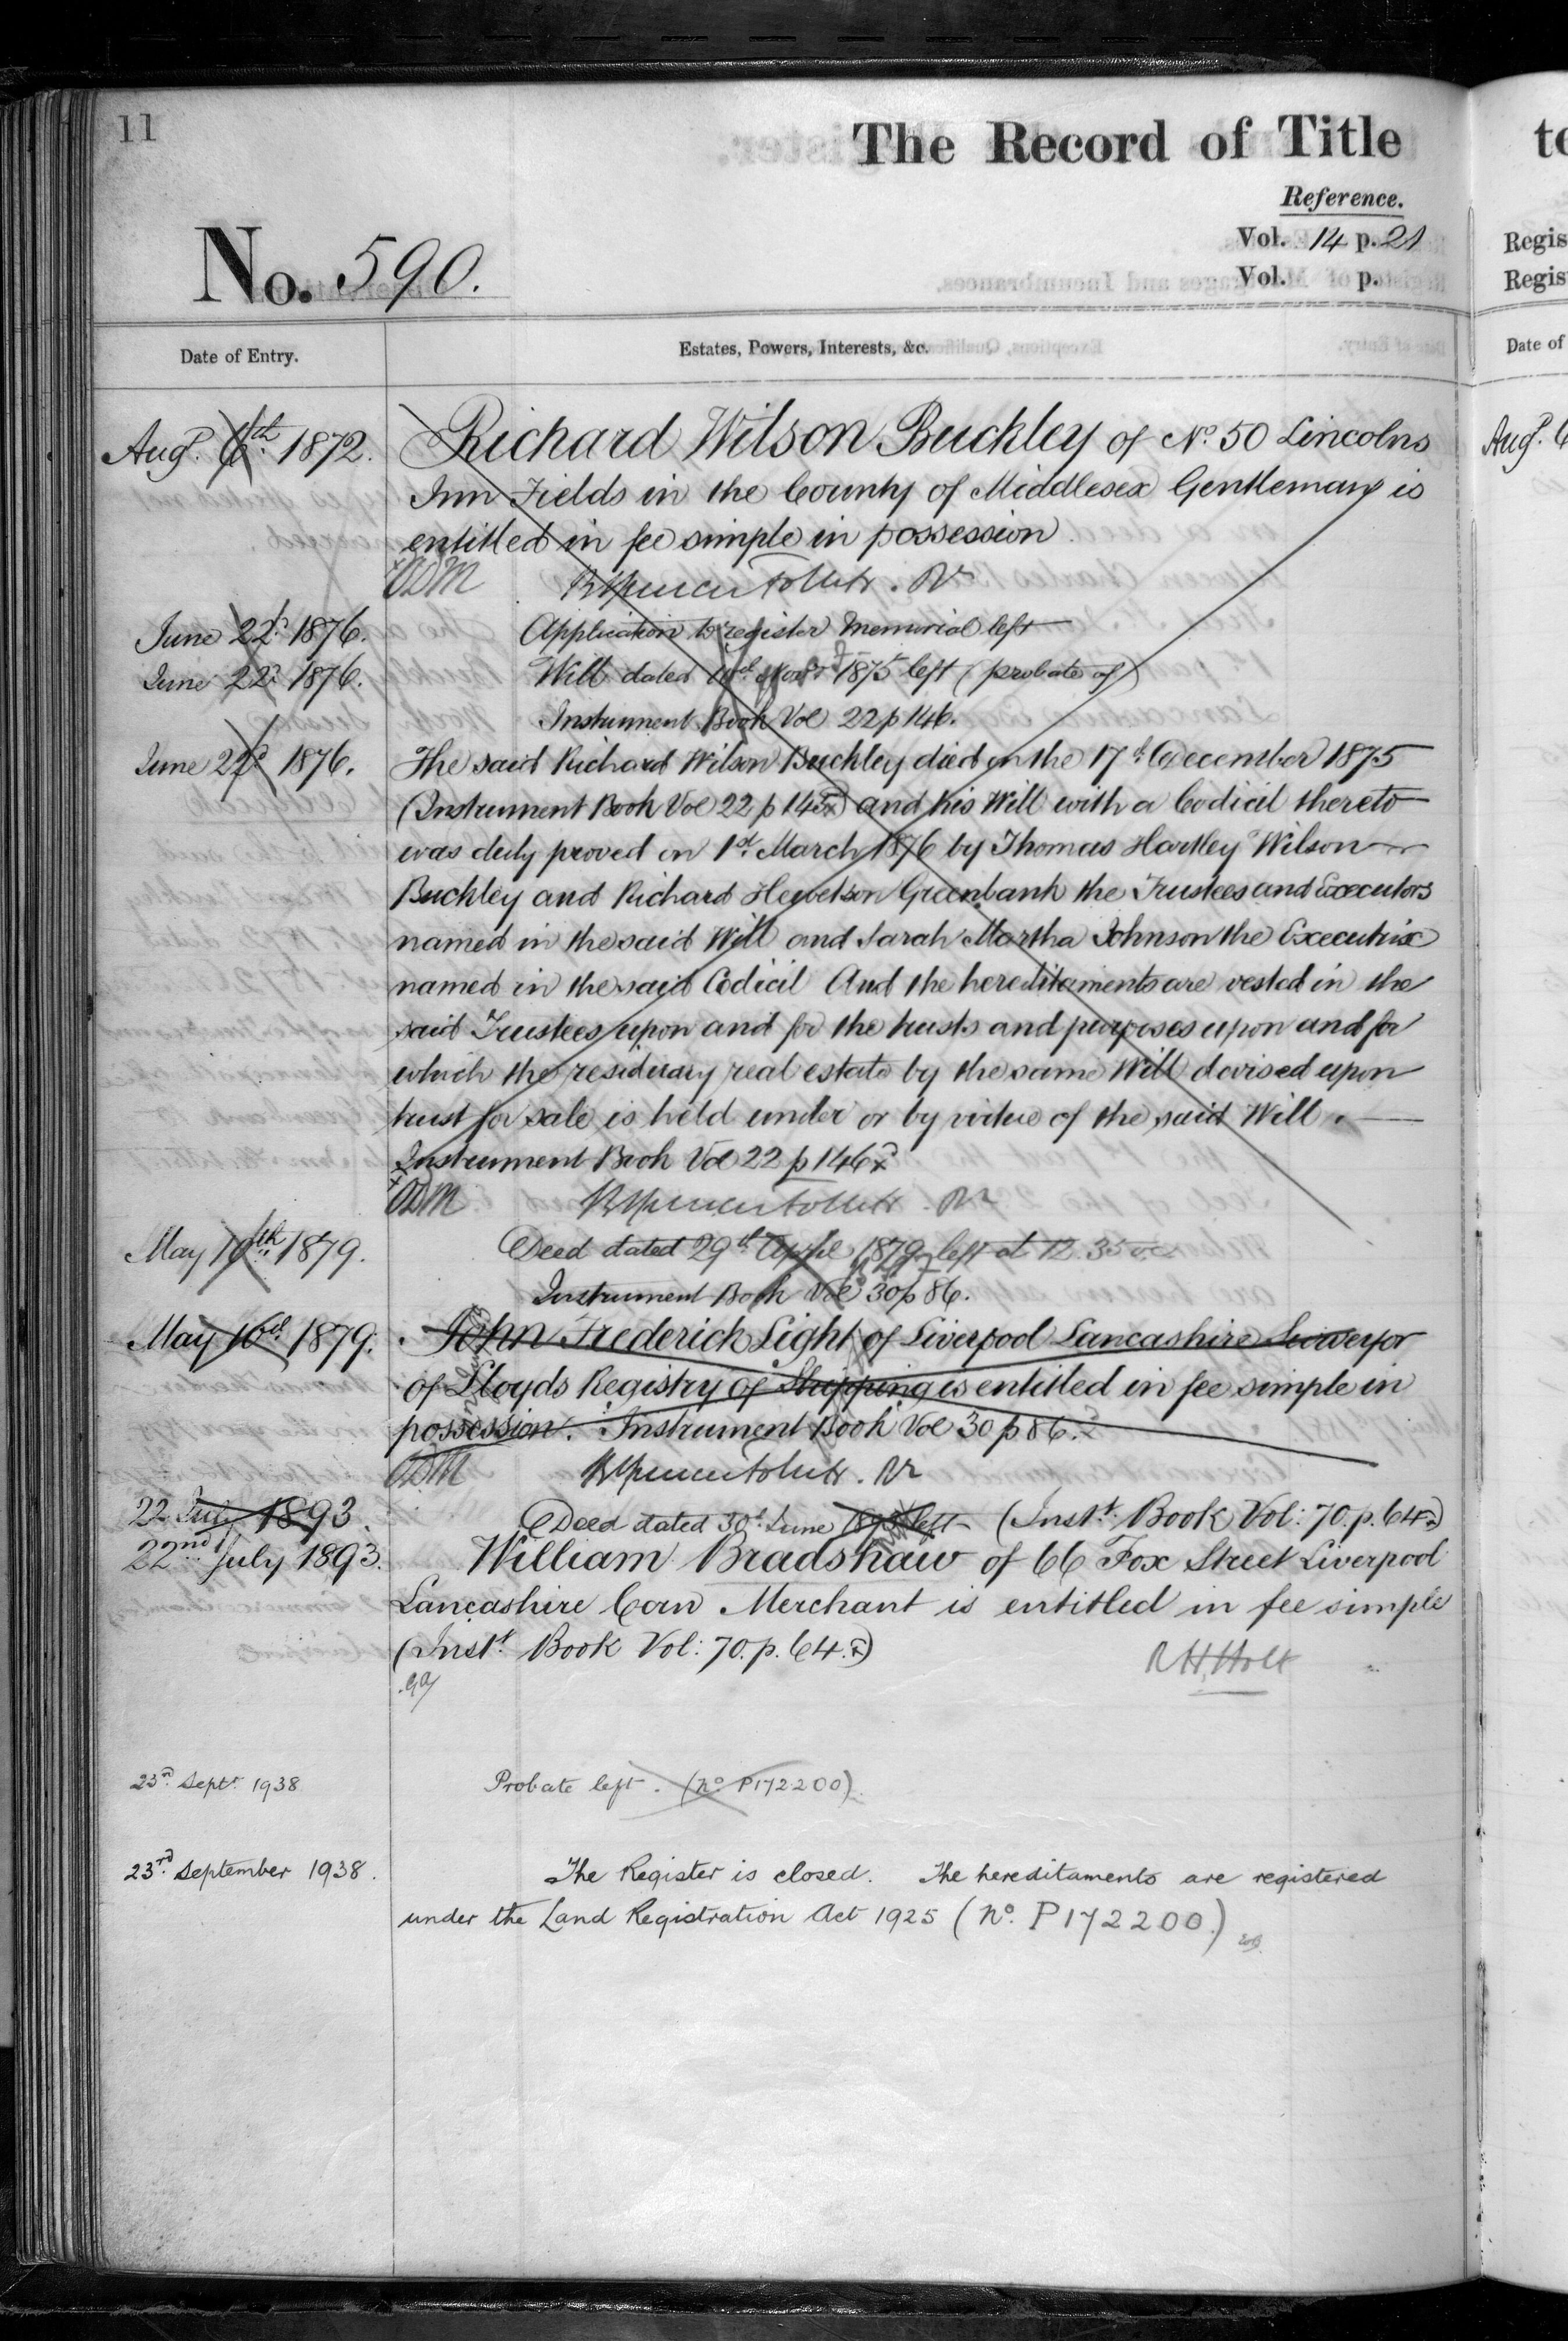 11
The Record of Title
Reference.
Vol. 14 p. 21
Vol. p.
No. 590.
Date of Entry.
Estates, Powers, Interests, &c.
Augt. 6th. 1872.
Richard Wilson Buckley of No. 50 Lincolns
Inn Fields in the County of Middlesex Gentleman is
entitled in fee simple in possession.
June 22d. 1876.
Application to register Memorial left
June 22d. 1876.
Will dated 1875 left (probate of)
Instrument Book Vol 22 p 146.
June 22d. 1876.
The said Richard Wilson Buckley died on the 17th December 1875
(Instrument Book Vol 22 p 145) and his Will with a Codicil thereto
was duly proved on 1st. March 1876 by Thomas Hartley Wilson
Buckley and Richard Hewetson Greenbank the Trustees and Executors
named in the said Will and Sarah Martha Johnson the Executrix
named in the said Codicil And the hereditaments are vested in the
said Trustees upon and for the trusts and purposes upon and for
which the residuary real estate by the same Will devised upon
trust for sale is held under or by virtue of the said Will.
Instrument Book Vol 22 p 146
May 10th. 1879.
Deed dated 29th April 1879 left at 12.35
Instrument Book Vol 30 p 86.
May 10th. 1879.
John Frederick Light of Liverpool Lancashire Surveyor
of Lloyds Registry of Shipping is entitled in fee simple in
possession. Instrument Book Vol 30 p 86.
22 July 1893.
Deed dated 30th June 1893 left (Inst. Book Vol: 70. p. 64.)
22nd. July 1893.
William Bradshaw of 66 Fox Street Liverpool
Lancashire Corn Merchant is entitled in fee simple
(Inst. Book Vol: 70. p. 64.)
R H Holt
23rd. Sept. 1938
Probate left. (No P172200).
23rd. September 1938.
The Register is closed. The hereditaments are registered
under the Land Registration Act 1925 (No. P172200.)
to
Regis
Regis
Date of
Augt. 6